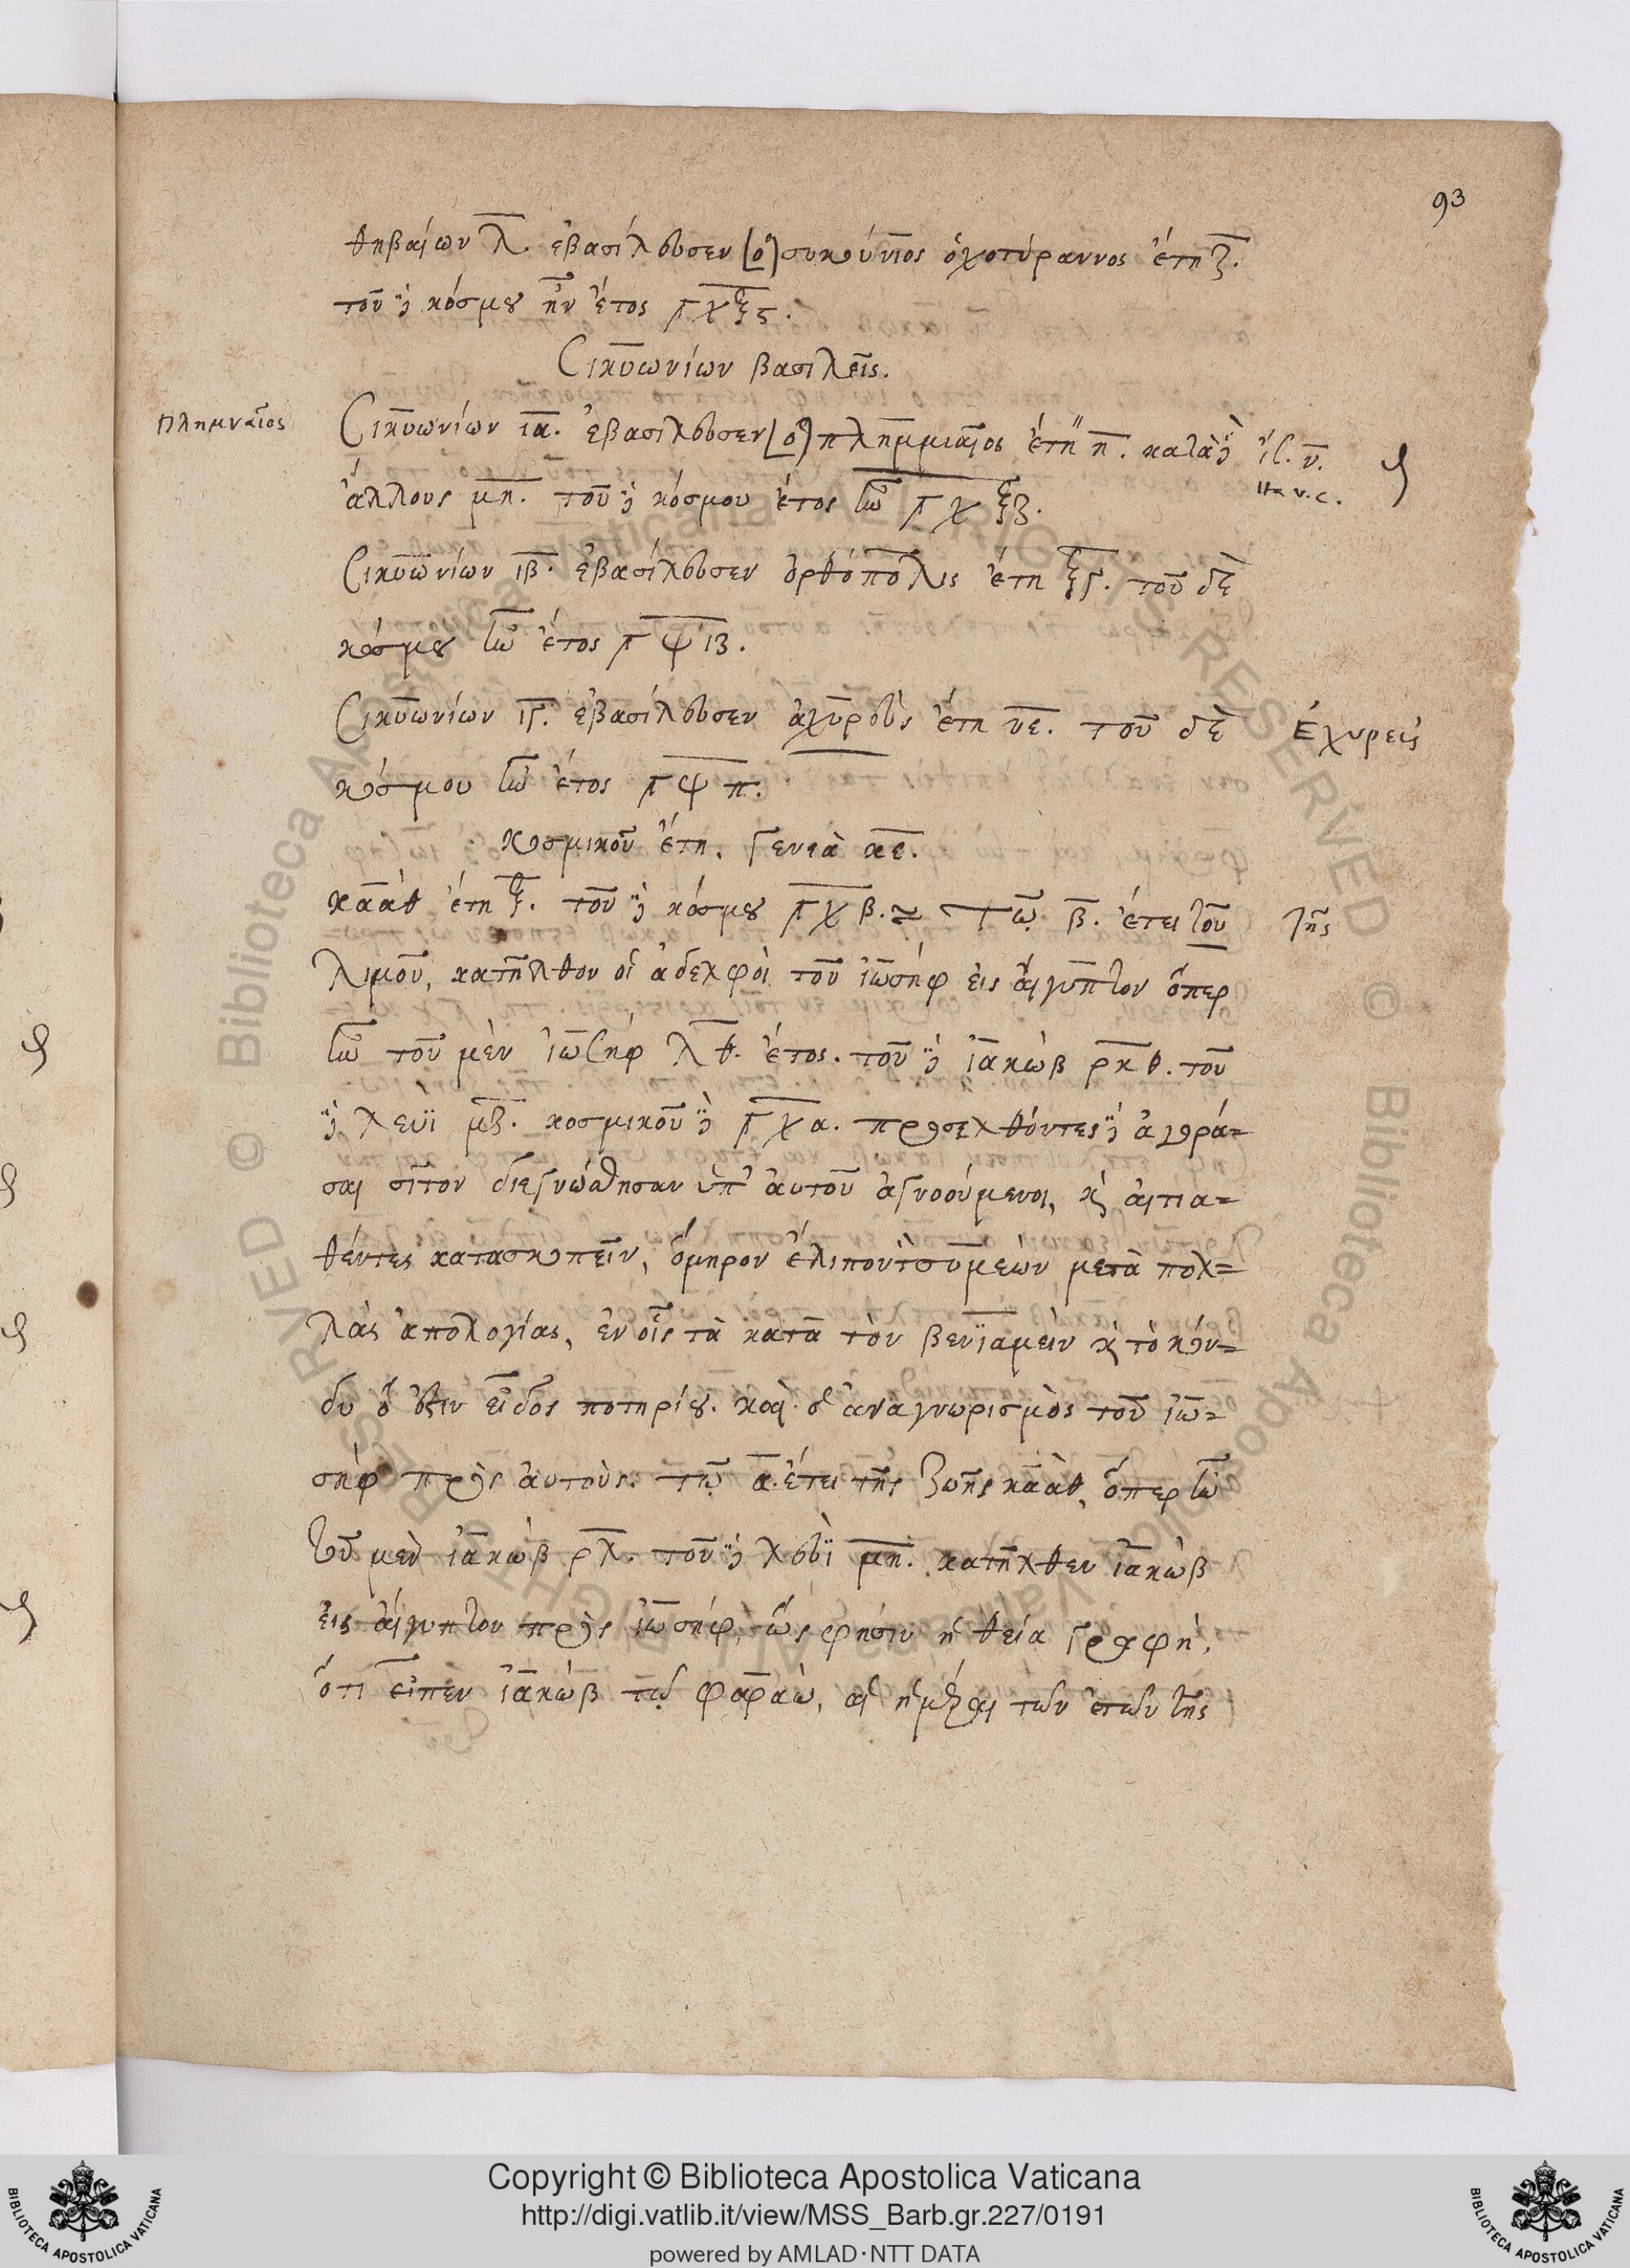 93
θηβαίων λ̅. ἐβασίλευσεν [ὁ] συκούνιος ὀχοτύραννος ἔτη ξ̅.
τοῦ δὲ κόσμου ἦν ἔτος ͵γχξς.
Σικυωνίων βασιλεῖς.
πλημναῖος
Σικυωνίων ια. ἐβασίλευσεν [ὁ] πλημμιαῖος ἔτη η̅. κατὰ δὲ
ἄλλους μη. τοῦ δὲ κόσμου ἔτος ἦν ͵γχξζ.
Σικυωνίων ιβ. ἐβασίλευσεν ὀρθόπολις ἔτη ξγ. τοῦ δὲ
κόσμου ἦν ἔτος ͵γψιζ.
Σικυωνίων ιγ. ἐβασίλευσεν ἀχυρεὺς ἔτη νε. τοῦ δὲ
Ἐχυρεὺς
κόσμου ἦν ἔτος ͵γψπ.
κοσμικοῦ ἔτη. γενεὰ κε.
καὰθ ἔτη ξ. τοῦ δὲ κόσμου ͵γχβ. τῷ β̅. ἔτει τοῦ
τῆς
λιμοῦ, κατῆλθον οἱ ἀδελφοὶ τοῦ ἰωσὴφ εἰς αἴγυπτον ὅπερ
ἦν τοῦ μὲν ἰωσὴφ λθ. ἔτος. τοῦ δὲ ἰακὼβ ρκθ. τοῦ
δὲ λευῒ μζ. κοσμικοῦ δὲ ͵γχα. προσελθόντες δὲ ἀγορά=
σαι σῖτον διεγνώσθησαν ὑπ' αὐτοῦ ἀγνοούμενοι, κὶ αἰτια=
θέντες κατασκοπεῖν, ὅμηρον ἔλιπον τὸν συμεὼν μετὰ πολ=
λὰς ἀπολογίας, ἐν οἷς τὰ κατὰ τὸν βενϊαμεὶν κὶ τὸ κόν=
δυ ὅ ἐστιν εἶδος ποτηρίου. καὶ ὁ ἀναγνωρισμὸς τοῦ ἰω=
σὴφ πρὸς αὐτοὺς. τῷ α̅. ἔτει τῆς ζωῆς καὰθ, ὅπερ ἦν
τοῦ μὲν ἰακὼβ ρλ. τοῦ δὲ λευῒ μη. κατῆλθεν ἰακὼβ
εἰς αἴγυπτον πρὸς ἰωσὴφ, ὥς φησιν ἡ θεία γραφὴ,
ὅτι εἶπεν ἰακὼβ τῷ φαραὼ, αἱ ἡμέραι τῶν ἐτῶν τῆς
© Biblioteca Apostolica Vaticana ALL RIGHTS RESERVED
Copyright © Biblioteca Apostolica Vaticana
http://digi.vatlib.it/view/MSS_Barb.gr.227/0191
powered by AMLAD·NTT DATA
BIBLIOTECA APOSTOLICA VATICANA
BIBLIOTECA APOSTOLICA VATICANA